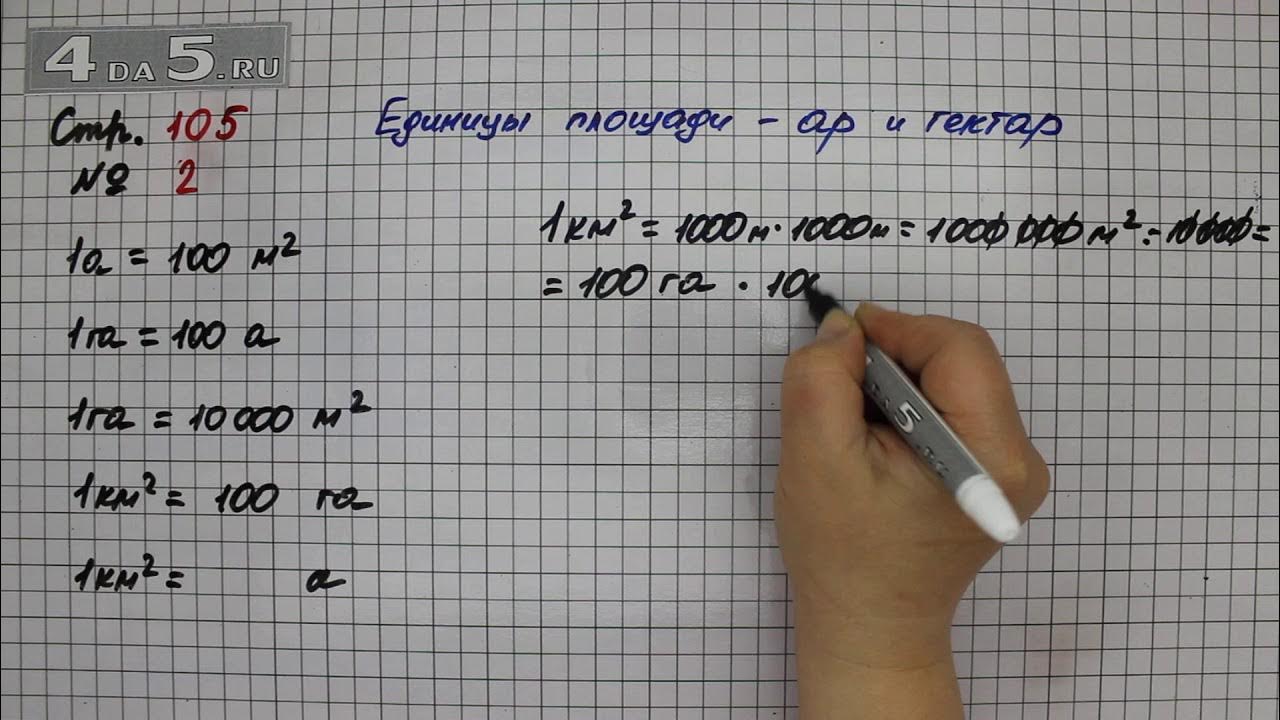 4DA5.RU
Стр. 105
№ 2
Единицы площади - ар и гектар
1а = 100 м²
1га = 100 а
1га = 10 000 м²
1км² = 100 га
1км² = а
1км² = 1000м · 1000м = 1000 000 м² : 10000 =
= 100 га · 100
5